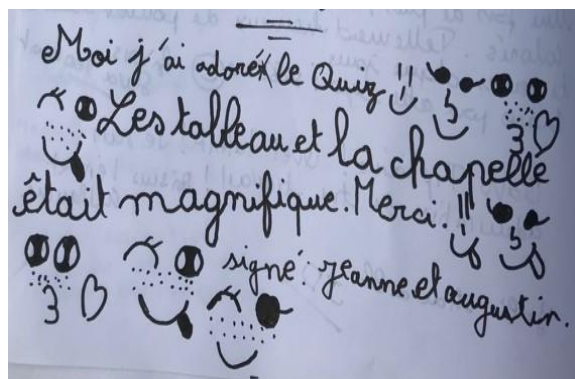 Moi j'ai adoré le Quiz !!
Les tableau et la chapelle
êtait magnifique. Merci. !!
signé : jeanne et augustin.